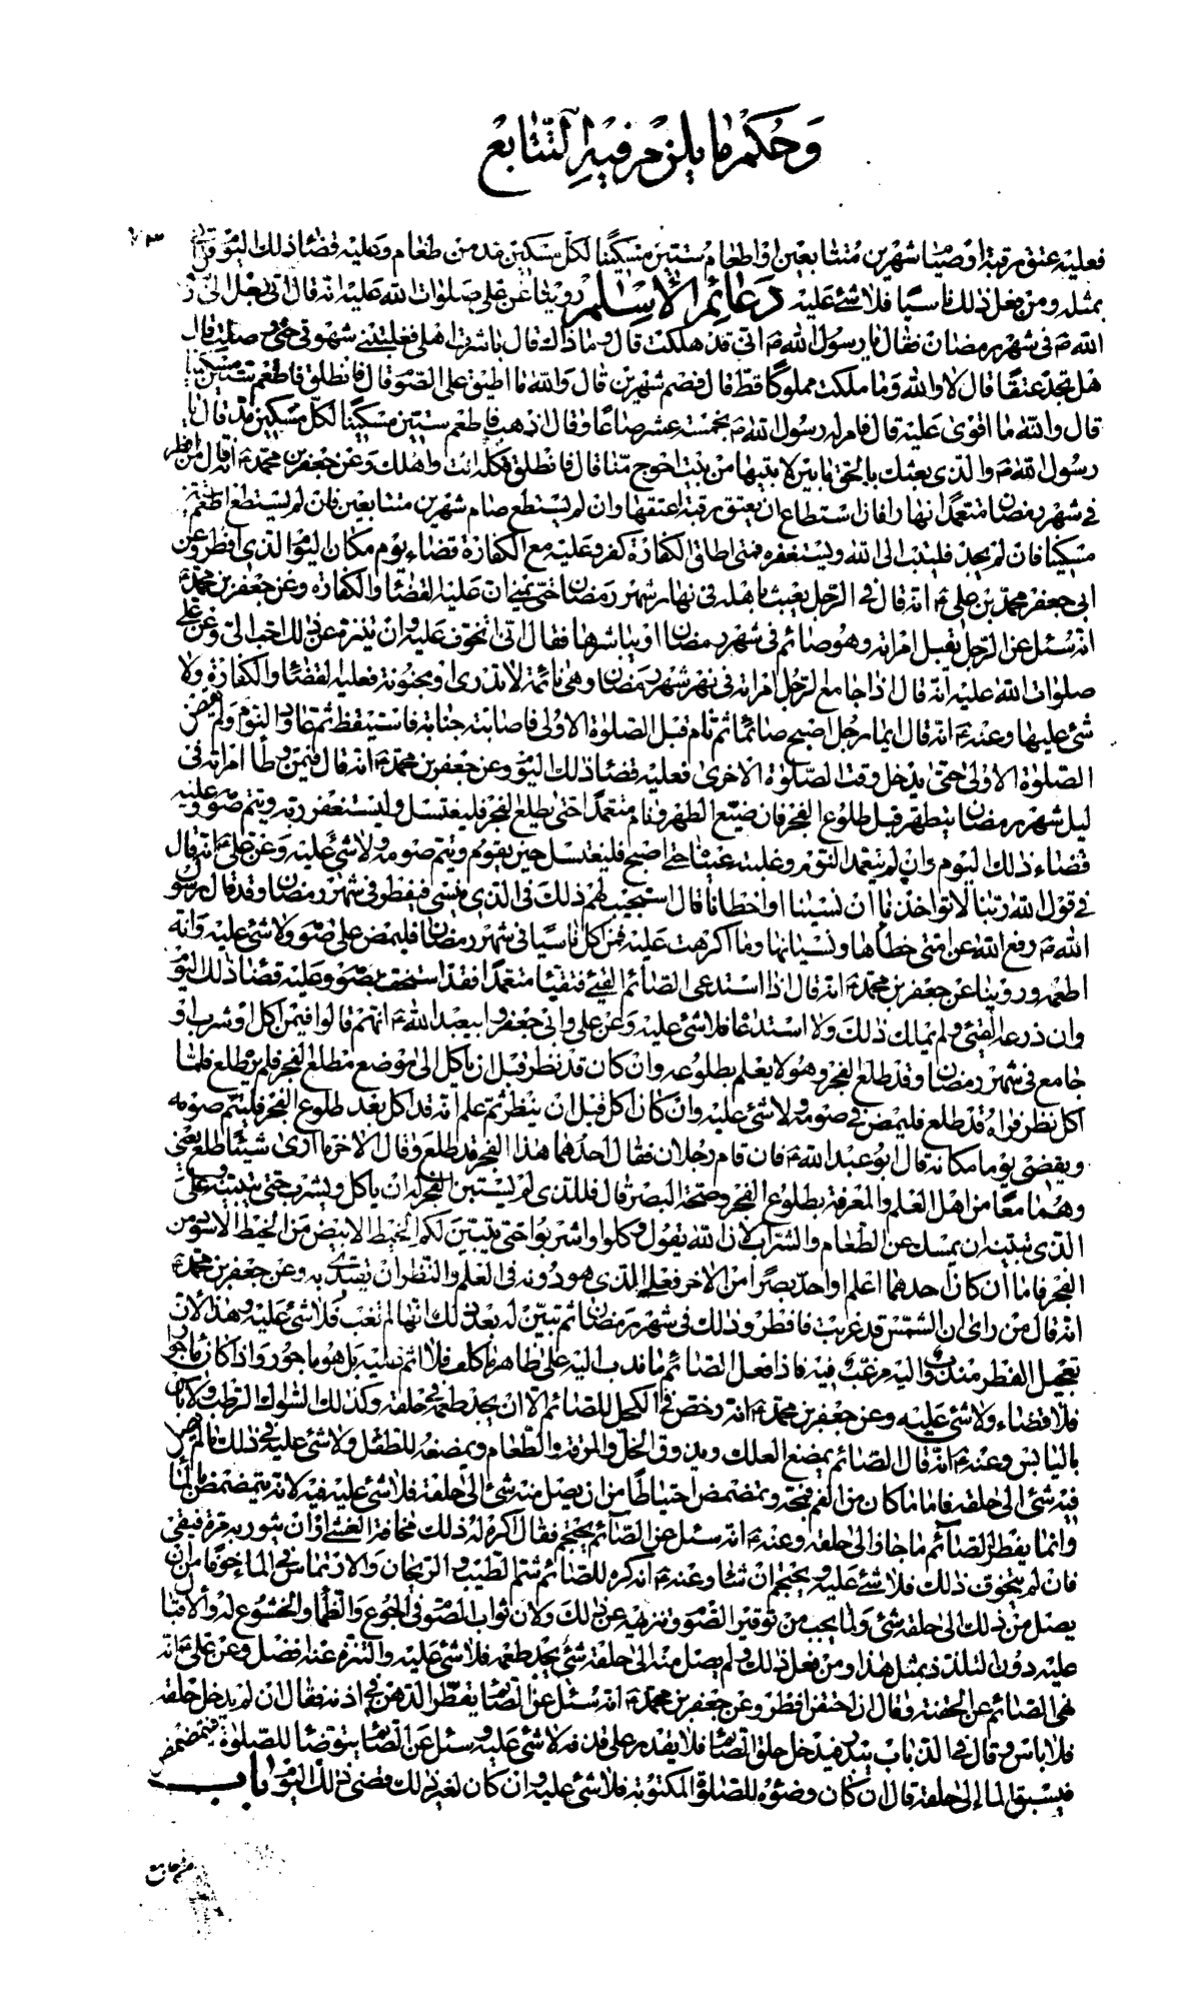 وَحُكْمِ مٰا يلزم فيهِ التّتٰابع
٧٣
فعليه عتق رقبة او صيام شهرين متتابعين او اطعام ستّين مسكينًا لكلّ مسكين مد من طعام وعليه قضاء ذلك اليوم
بمثله ومن فعل ذلك ناسيًا فلا شئ عليه دَعائِم الاِسْلٰم روينا عن علي صلوات الله عليه انه قال اتى رجل الى
الله ص في شهر رمضان فقال يا رسول الله ص اني قد هلكت قال وما ذاك قال باشرت اهلي فغلبتني شهوتي حتى وصلت قال
هل تجد عتقًا قال لا والله وما ملكت مملوكًا قط قال فصم شهرين قال والله ما اطيق على الصوم قال فانطلق فاطعم ستين مسكينًا
قال والله ما اقوى عليه قال فامر له رسول الله ص بخمسة عشر صاعًا وقال اذهب فاطعم ستين مسكينًا لكل مسكين مد قال يا
رسول الله ص والذي بعثك بالحق ما بين لابتيها من بيت احوج منّا قال فانطلق فكله انت واهلك وعن جعفر بن محمد ع انه قال من افطر
في شهر رمضان متعمدًا نهارًا فان استطاع ان يعتق رقبة اعتقها وان لم يستطع صام شهرين متتابعين فان لم يستطع اطعم ستين
مسكينا فان لم يجد فليتب الى الله ويستغفره فمتى اطاق الكفارة كفر وعليه مع الكفارة قضاء يوم مكان اليوم الذي افطر وعن
ابي جعفر محمد بن علي ع انه قال في الرجل يعبث باهله في نهار شهر رمضان حتى يمني ان عليه القضاء والكفارة وعن جعفر بن محمد ع
انه سئل عن الرجل يقبل امرأته وهو صائم في شهر رمضان او يباشرها فقال اني اتخوف عليه وان يتنزه عن ذلك احب الي وعن علي
صلوات الله عليه انه قال اذا جامع الرجل امرأته في نهار شهر رمضان وهي نائمة لا تدري او مجنونة فعليه القضاء والكفارة ولا
شئ عليها وعنه ع انه قال ايما رجل اصبح صائمًا ثم نام قبل الصلوة الاولى فاصابته جنابة فاستيقظ ثم عاود النوم ولم يقض
الصلوة الاولى حتى يدخل وقت الصلوة الاخرى فعليه قضاء ذلك اليوم وعن جعفر بن محمد ع انه قال فيمن وطأ امرأته في
ليل شهر رمضان يتطهر قبل طلوع الفجر فان ضيّع الطهر ونام متعمدًا حتى يطلع الفجر فليغتسل وليستغفر ربه ويتم صومه وعليه
قضاء ذلك اليوم وان لم يتعمد النوم وغلبته عيناه حتى اصبح فليغتسل حين يقوم ويتم صومه ولا شئ عليه وعن علي ع انه قال
في قول الله ربنا لا تؤاخذنا ان نسينا او اخطأنا قال استجيب لهم ذلك في الذي ينسى فيفطر في شهر رمضان وقد قال رسول
الله ص رفع الله عن امتي خطاها ونسيانها وما اكرهت عليه فمن اكل ناسيًا في شهر رمضان فليمض على صومه ولا شئ عليه والله
اطعمه وروينا عن جعفر بن محمد ع انه قال اذا استدعى الصائم القئ فتقيأ متعمدًا فقد استخف بصومه وعليه قضاء ذلك اليوم
وان ذرعه القئ ولم يملك ذلك ولا استدعاه فلا شئ عليه وعن علي وابي جعفر وابي عبد الله ع انهم قالوا فيمن اكل او شرب او
جامع في شهر رمضان وقد طلع الفجر وهو لا يعلم بطلوعه وان كان قد نظر قبل ان ياكل الى موضع مطلع الفجر فلم يره طلع فلما
اكل نظر فراه قد طلع فليمض في صومه ولا شئ عليه وان كان اكل قبل ان ينظر ثم علم انه قد اكل بعد طلوع الفجر فليتم صومه
ويقضي يوما مكانه قال ابو عبد الله ع فان قام رجلان فقال احدهما هذا الفجر قد طلع وقال الاخر ما ارى شيئًا طلع يعني
وهما معًا من اهل العلم والمعرفة بطلوع الفجر وصحة البصر قال فللذي لم يستبن الفجر له ان ياكل ويشرب حتى يتبينه وعلى
الذي تبينه ان يمسك عن الطعام والشراب لان الله يقول وكلوا واشربوا حتى يتبين لكم الخيط الابيض من الخيط الاسود من
الفجر فاما ان كان احدهما اعلم او احدّ بصرًا من الاخر فعلى الذي هو دونه في العلم والنظر ان يقتدي به وعن جعفر بن محمد ع
انه قال من راى ان الشمس قد غربت فافطر وذلك في شهر رمضان ثم تبين له بعد ذلك انها لم تغب فلا شئ عليه وهذا لان
تعجيل الفطر مندوب اليه مرغب فيه فاذا فعل الصائم ما ندب اليه على ظاهر ما كلف فلا اثم عليه بل هو ماجور واذا كان ماجورًا
فلا قضاء ولا شئ عليه وعن جعفر بن محمد ع انه رخص في الكحل للصائم الا ان يجد طعمه في حلقه وكذلك السواك الرطب ولا باس
باليابس وعنه ع انه قال الصائم يمضغ العلك ويذوق الخل والمرقة والطعام ويمضغه للطفل ولا شئ عليه في ذلك ما لم يصل
فيه شئ الى حلقه فاما ما كان من الفم فمجه وتمضمض احتياطًا من ان يصل منه شئ الى حلقه فلا شئ عليه فيه لانه يتمضمض بالماء
وانما يفطر الصائم ما جاز الى حلقه وعنه ع انه سئل عن الصائم يحتجم فقال اكره له ذلك مخافة الغشي او ان يثور به مرة فيقئ
فان لم يتخوف ذلك فلا شئ عليه ويحتجم ان شاء وعنه ع انه كره للصائم شم الطيب والريحان والارتماس في الماء خوفًا من ان
يصل من ذلك الى حلقه شئ ولما يجب من توقير الصوم وتنزيهه عن ذلك ولان ثواب الصوم في الجوع والظمأ والخشوع له والاقبال
عليه دون التلذذ بمثل هذا ومن فعل ذلك ولم يصل منه الى حلقه شئ يجد طعمه فلا شئ عليه والتنزه عنه افضل وعن علي ع انه
نهى الصائم عن الحقنة وقال ان احتقن افطر وعن جعفر بن محمد ع انه سئل عن الصائم يقطر الدهن في اذنه فقال ان لم يدخل حلقه
فلا باس وقال في الذباب يبدر فيدخل حلق الصائم فلا يقدر على قذفه لا شئ عليه وسئل عن الصائم يتوضأ للصلوة فيتمضمض
فيسبق الماء الى حلقه قال ان كان وضوؤه للصلوة المكتوبة فلا شئ عليه وان كان لغير ذلك قضى ذلك اليوم باب